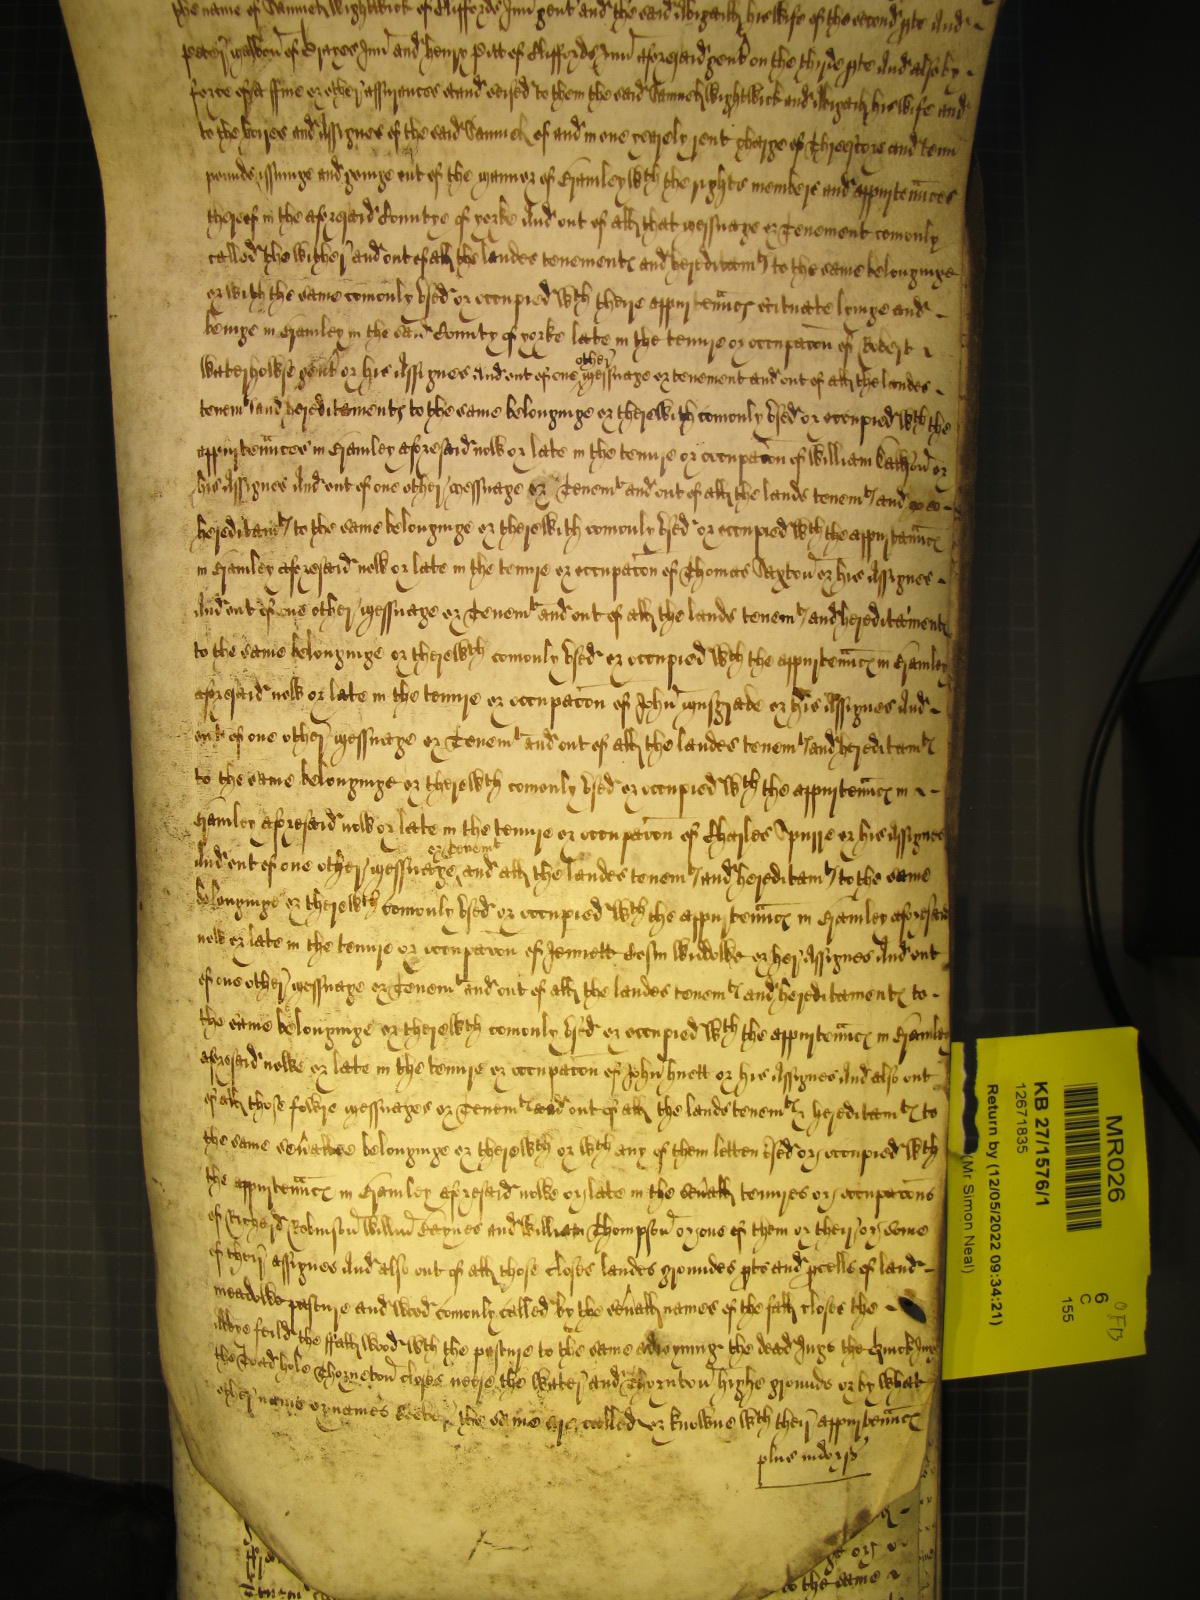 the name of Samuell Wightwick of Cliffords Inn gent and the said Abigaill his wife of the second pte And
Peter of Inn and Henry Pitt of Cliffords Inn aforesaid gent on the third pte And also by
force of a ffine or other assurances stand seised to them the said Samuell Wightwick and Abigaill his wife and
to the heires and Assignes of the said Samuell of and in one yearely rent charge of Threescore and tenn
pounds issuinge and goinge out of the mannor of Hamley wth the rights members and appurtenances
thereof in the aforesaid Countye of yorke And out of all that messuage or Tenement comonly
called the and out of all the landes tenements and hereditamts to the same belonginge
or with the same comonly used or occupied wth there appurtenncs scituate lyinge and
beinge in Hamley in the said County of yorke late in the tenure or occupacon of Robert
Waterhowse gent or his Assignes And out of one other messuage or tenement and out of all the landes
tenemts and hereditaments to the same belonginge or therewith comonly used or occupied wth the
appurtennces in Hamley aforesaid now or late in the tenure or occupacon of William or
his Assignes And out of one other messuage or Tenemt and out of all the lands tenemts and
hereditamts to the same belonginge or therewith comonly used or occupied wth the appurtenncs
in Hamley aforesaid now or late in the tenure or occupacon of Thomas Saxton or his Assignes
And out of one other messuage or Tenemt and out of all the lands tenemts and hereditaments
to the same belonginge or therewth comonly used or occupied wth the appurtenncs in Hamley
aforesaid now or late in the tenure or occupacon of John Musgrave or his Assignes And
out of one other messuage or Tenemt and out of all the landes tenemts and hereditamts
to the same belonginge or therewth comonly used or occupied wth the appurtenncs in
Hamley aforesaid now or late in the tenure or occupacon of Charles Spurre or his Assignes
And out of one other messuage or tenemt and all the landes tenemts and hereditamts to the same
belonginge or therewth comonly used or occupied wth the appurtenncs in Hamley aforesaid
now or late in the tenure or occupacon of Jennett widdowe or her Assignes And out
of one other messuage or Tenemt and out of all the landes tenemts and hereditaments to
the same belonginge or therewth comonly used or occupied wth the appurtenncs in Hamley
aforesaid nowe or late in the tenure or occupacon of John or his Assignes And also out
of all those fowre messuages or Tenemts and out of all the lands tenemts & hereditamts to
the same belonginge or therewth or wth any of them letten used or occupied wth
the appurtenncs in Hamley aforesaid nowe or late in the sevall tenures or occupacons
of Richard Robinson Willm and William Thompson or one of them or their or some
of their assignes And also out of all those closes landes grounds pts and pcells of land
meadowe pasture and wood comonly called by the sevall names of the fall closes the
feild the ffall wood wth the pasture to the same adioyninge the dead Ings the Quick Ings
the Toad hole Thorneton closes neere the water and Thornton highe grounds or by what
other name or names soever the same are called or knowne wth their appurtenncs
plus indors
to the same
MR026
KB 27/1576/1
12671835
Return by (12/05/2022 09:34:21)
(Mr Simon Neal)
6
C
155